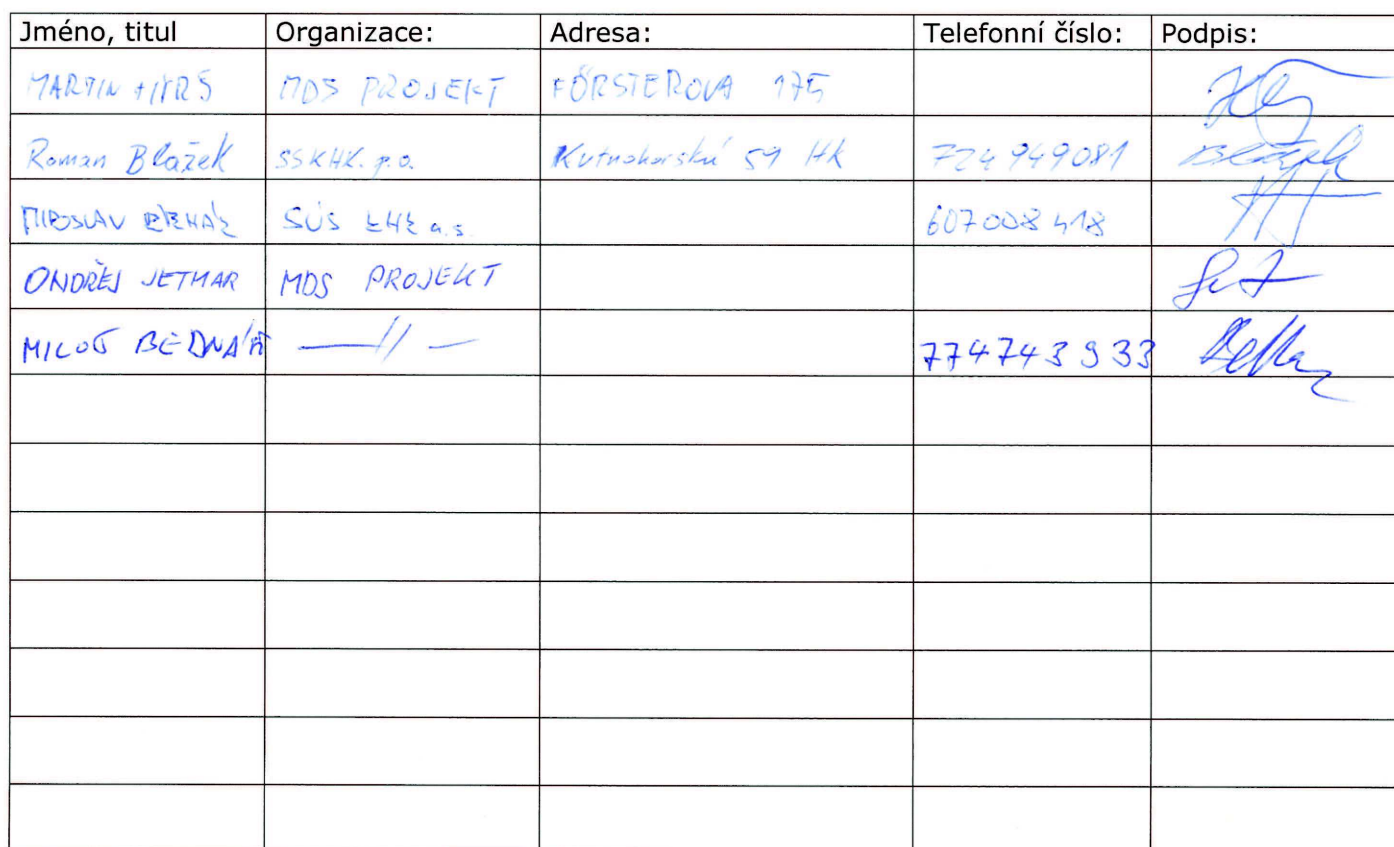 Jméno, titul Organizace: Adresa: Telefonní číslo: Podpis:
MARTIN MDS PROJEKT FÖRSTEROVA 175
Roman Blažek SSKHK. p.o. Kutnohorská 59 HK 724 949 081
MIROSLAV SÚS KHK a.s. 607 008 418
ONDŘEJ JETMAR MDS PROJEKT
MILOŠ BEDNÁŘ —//— 774 743 933